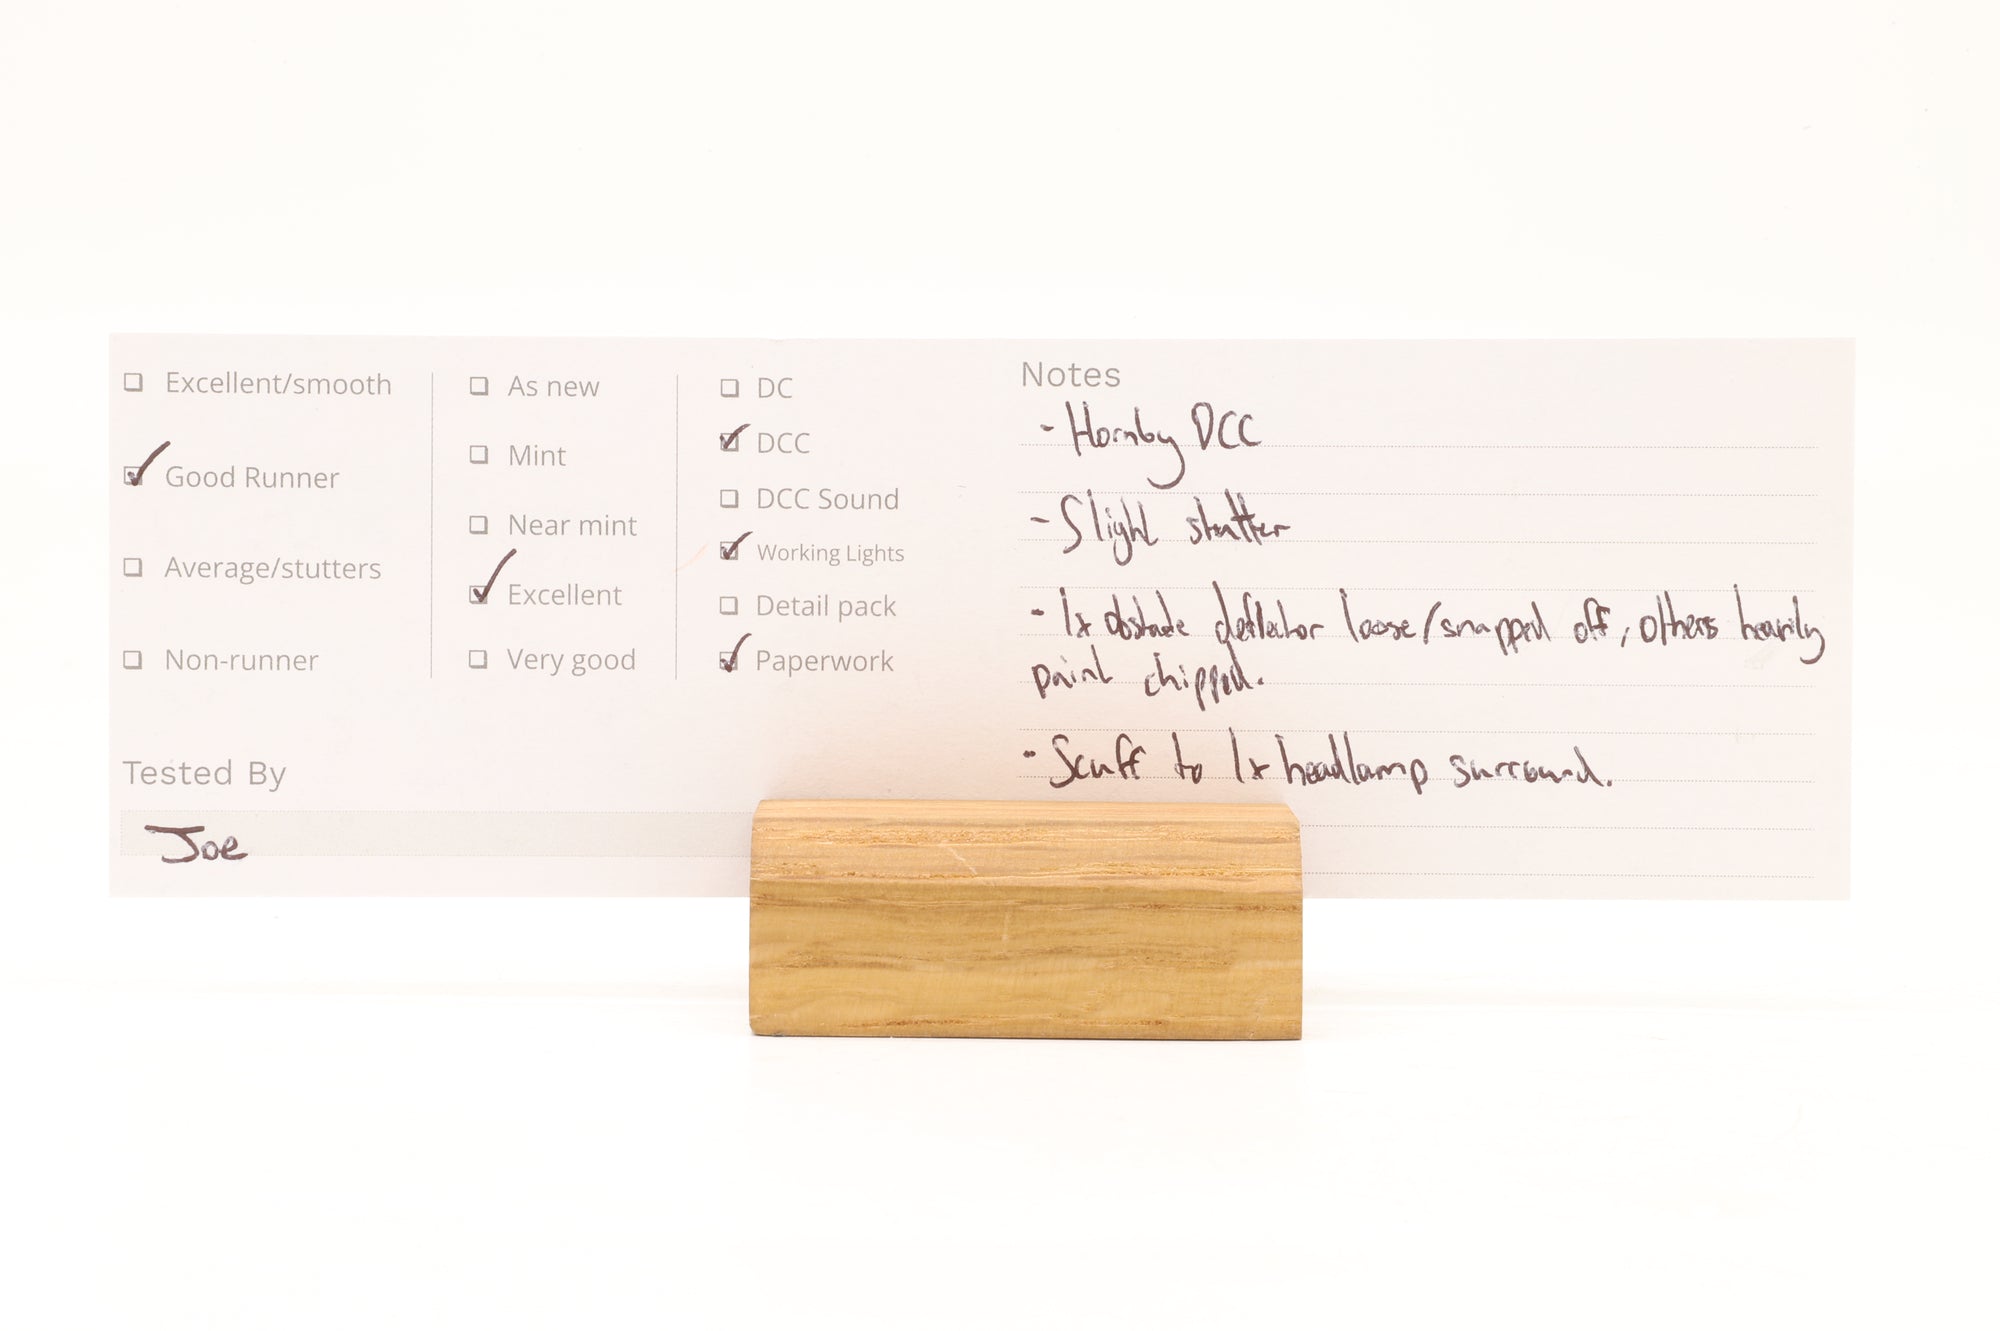 Excellent/smooth
Good Runner
Average/stutters
Non-runner
As new
Mint
Near mint
Excellent
Very good
DC
DCC
DCC Sound
Working Lights
Detail pack
Paperwork
Tested By
Joe
Notes
- Hornby DCC
- Slight stutter
- 1x obstacle deflector loose/snapped off, others heavily
paint chipped.
- Scuff to 1x headlamp surround.